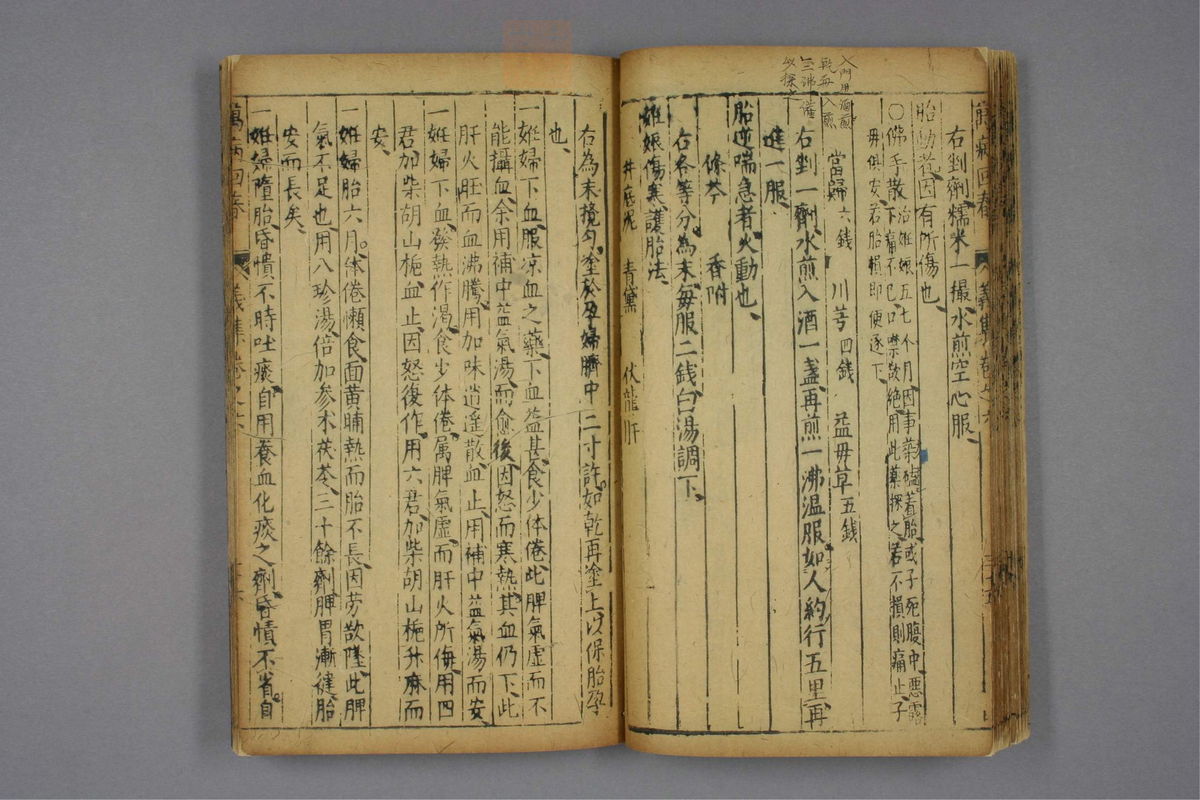 入門用酒煎
乾再入煎
二三沸催
以探之
右剉劑糯米一撮水煎空心服
胎動者因有所傷也
○佛手散治妊娠五七个月因事築磕着胎或子死腹中惡露
下痛不已口噤欲絶用此藥探之若不損則痛止子
母俱安若胎損即便逐下
當歸六錢 川芎四錢 益母草五錢
右剉一劑水煎入酒一盞再煎一沸温服如人約行五里再
進一服
胎逆喘急者火動也
條芩 香附
右各等分為末每服二錢白湯調下
妊娠傷寒護胎法
井底泥 青黛 伏龍肝
右為末攪勻塗於孕婦臍中二寸許如乾再塗上以保胎孕
也
一妊婦下血服凉血之藥下血益甚食少体倦此脾氣虚而不
能攝血余用補中益氣湯而愈後因怒而寒熱其血仍下此
肝火旺而血沸騰用加味逍遥散血止用補中益氣湯而安
一妊婦下血發熱作渴食少体倦属脾氣虚而肝火所侮用四
君加柴胡山梔血止因怒後作用六君加柴胡山梔升麻而
安
一妊婦胎六月体倦懶食面黄晡熱而胎不長因劳欲墜此脾
氣不足也用八珍湯倍加参朮茯苓三十餘劑脾胃漸健胎
安而長矣
一妊婦墮胎昏憒不時吐痰自用養血化痰之劑昏憒不省自
萬病回春